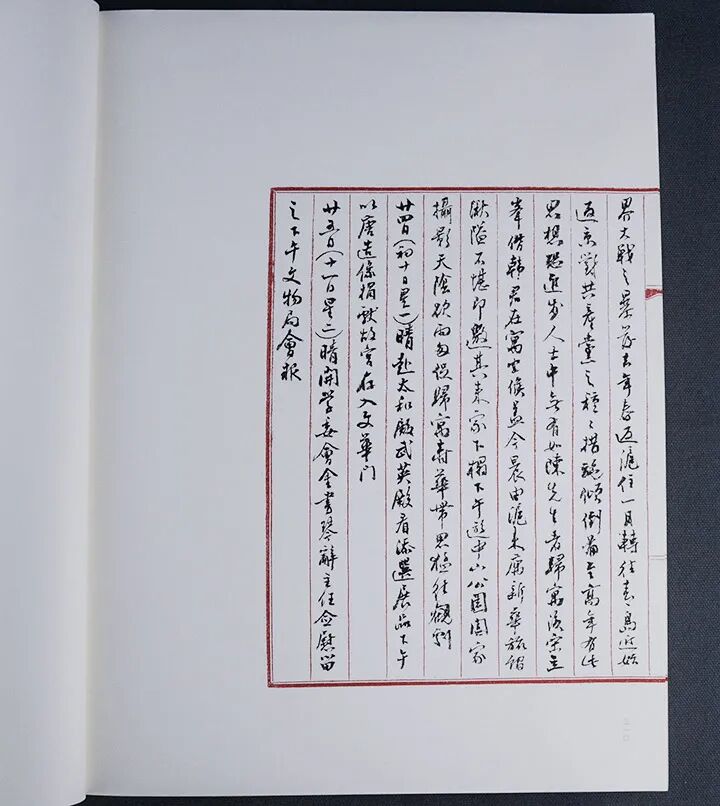 界大战之暴 去年春返滬住一月轉往青島近始
返京對共產黨之種〻措施傾倒備至高年有此
思想恐進步人士中無有如陳先生者歸寓後宗主
峯偕韓君在寓守候蓋今晨由滬來廣新華旅館
湫隘不堪即邀其來家下榻下午遊中山公園園家
攝影天陰欲雨匆促歸寓壽華帶思猛往觀劇
廿四日(初十日星一)晴赴太和殿武英殿看添選展品下午
以唐造像捐獻故宫存入文華门
廿五日(十一日星二)晴開学委會金書琴辭主任僉慰留
之下午文物局會報